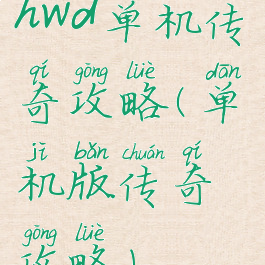 hwd单机传
qí gōng lüè dān
奇攻略(单
jī bǎn chuán qí
机版传奇
gōng lüè
攻略)